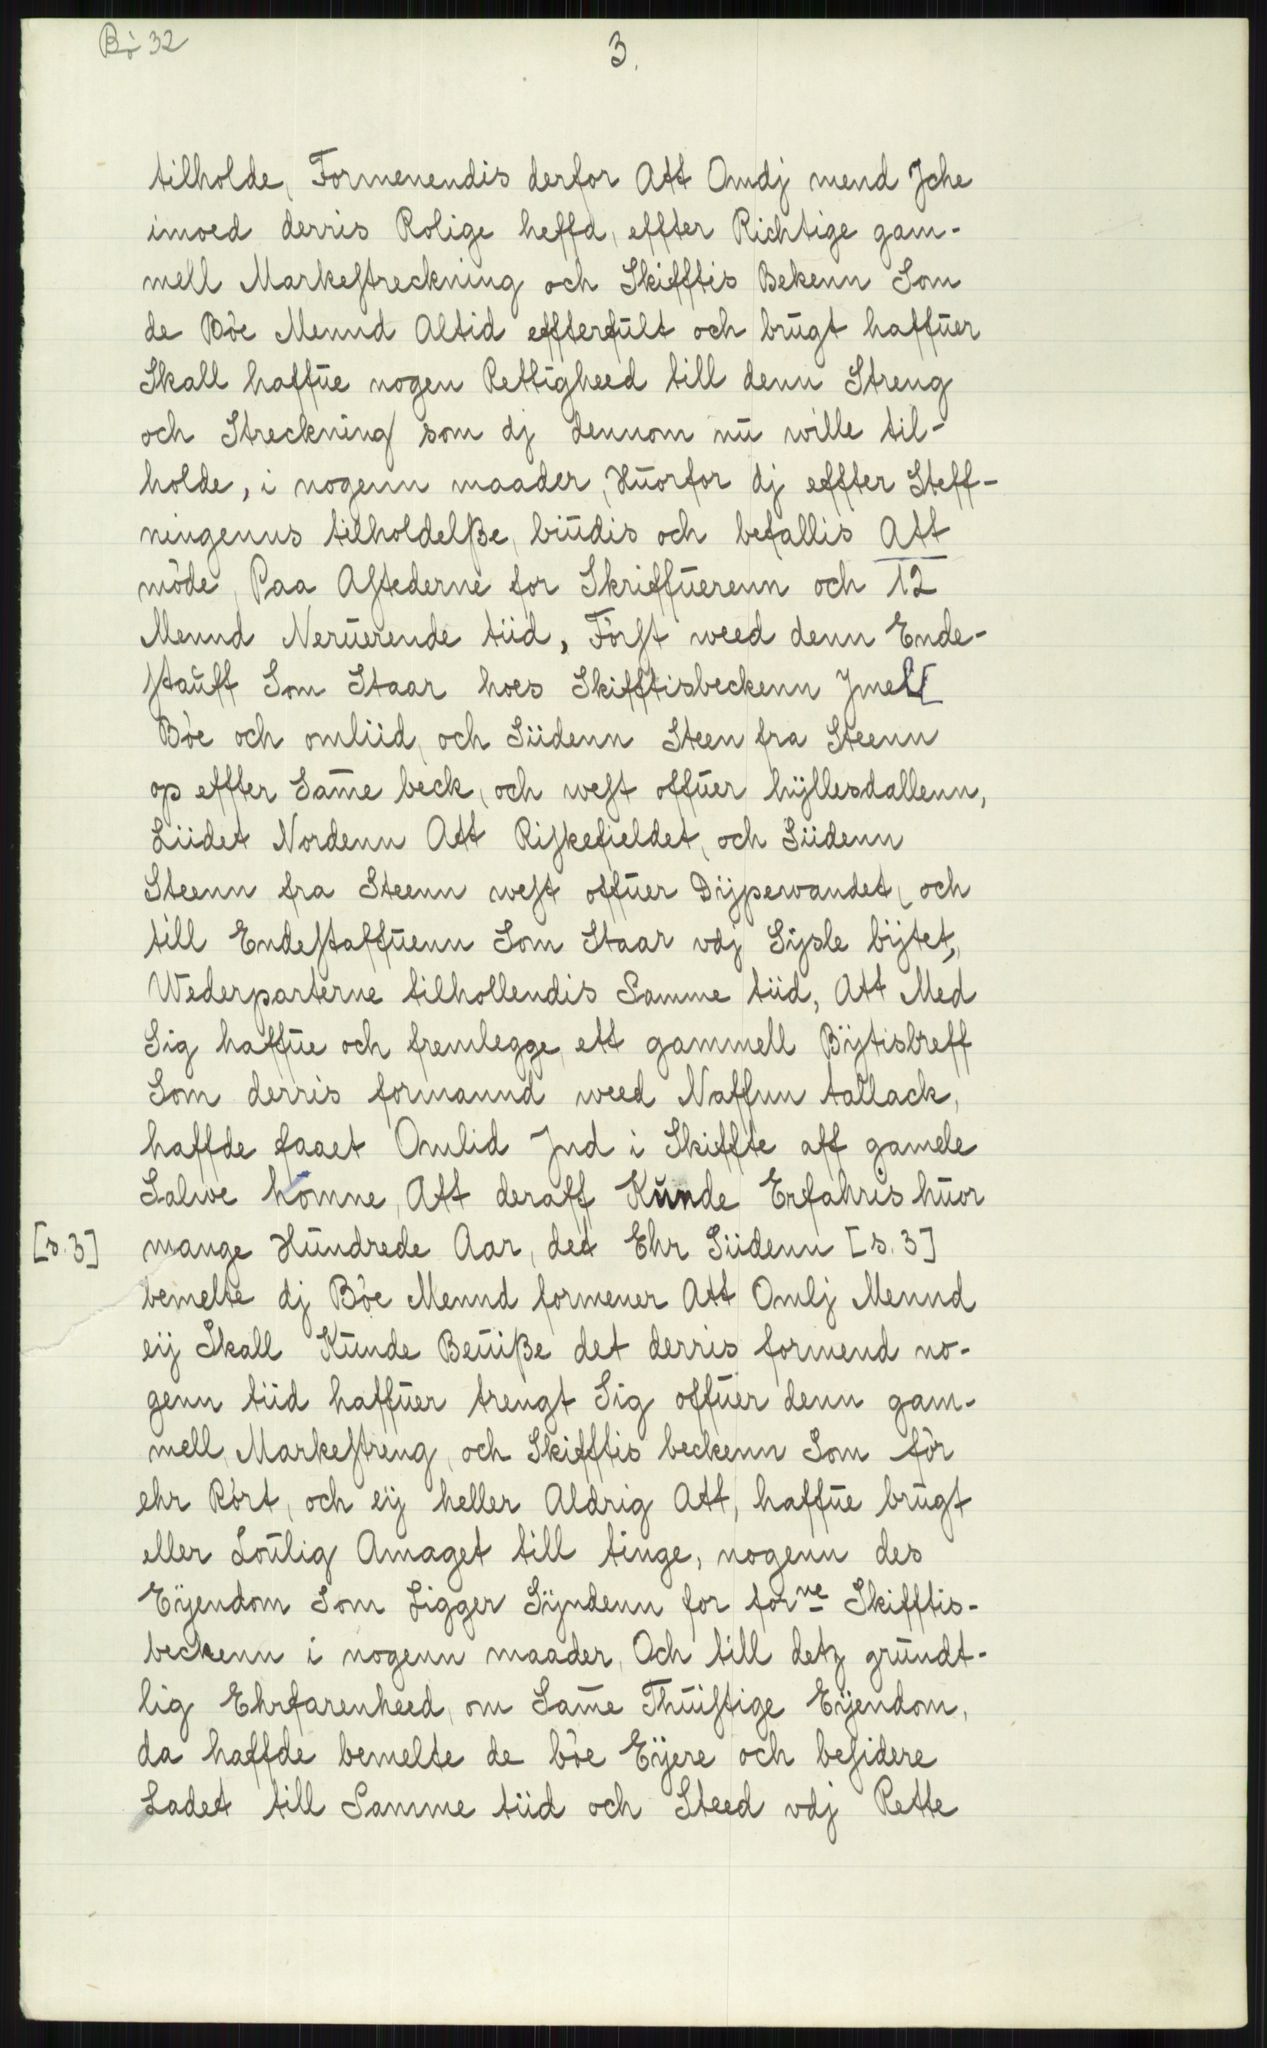 Bö 32
3.
tilholde, Formenendis derfor Att Omdj mend Jche
imoed derris Rolige heffd, effter Richtige gam-
mell Markestreckning och Skifftis Bekenn Som
de Böe Mennd Altid effterfult och brugt haffuer
Skall haffue nogen Rettigheed till denn Streng
och Streckning som dj dennom nu wille til-
holde, i nogenn maader, Huorfor dj effter Steff-
ningenns tilholdelße, biudis och befallis Att
möde, Paa Astederne for Skriffuerenn och 12
Mennd Neruerende tiid, Först weed denn Ende-
stauff Som Staar hoes Skifftisbeckenn Jmell
Böe och omliid, och Siidenn Steen fra Steenn
op effter Same beck, och west offuer hÿllesdallenn,
Liidet Nordenn Att Riskefieldet, och Siidenn
Steenn fra Steenn west offuer Dÿpewandet, och
till Endestaffuenn Som Staar vdj Sÿsle bÿtet,
Wederparterne tilhollendis Samme tiid, Att Med
Sig haffue och fremlegge, ett gammell Bÿtisbreff
Som derris formannd weed Naffnn tallack,
haffde faaet Omlid Jnd i Skiffte aff gamele
Salwe homne, Att deraff Kunde Erfahris huor
[s. 3] mange Hundrede Aar, det Ehr Siidenn [s. 3]
bemelte dj Böe Mennd formener Att Omlj Mennd
eij Skall Kunde Beuiße det derris formend no-
genn tiid haffuer trengt Sig offuer denn gam-
mell Markestreng, och Skifftis beckenn Som för
ehr Rört, och eij heller Aldrig Att, haffue brugt
eller Loulig Amaget till tinge, nogenn des
Eÿendom Som Ligger Sÿndenn for forne Skifftis-
beckenn i nogenn maader, Och till detz grundt-
lig Ehrfarenheed, om Same Thuistige Eÿendom,
da haffde bemelte de böe Eÿere och besidere
Ladet till Samme tiid och Steed vdj Rette